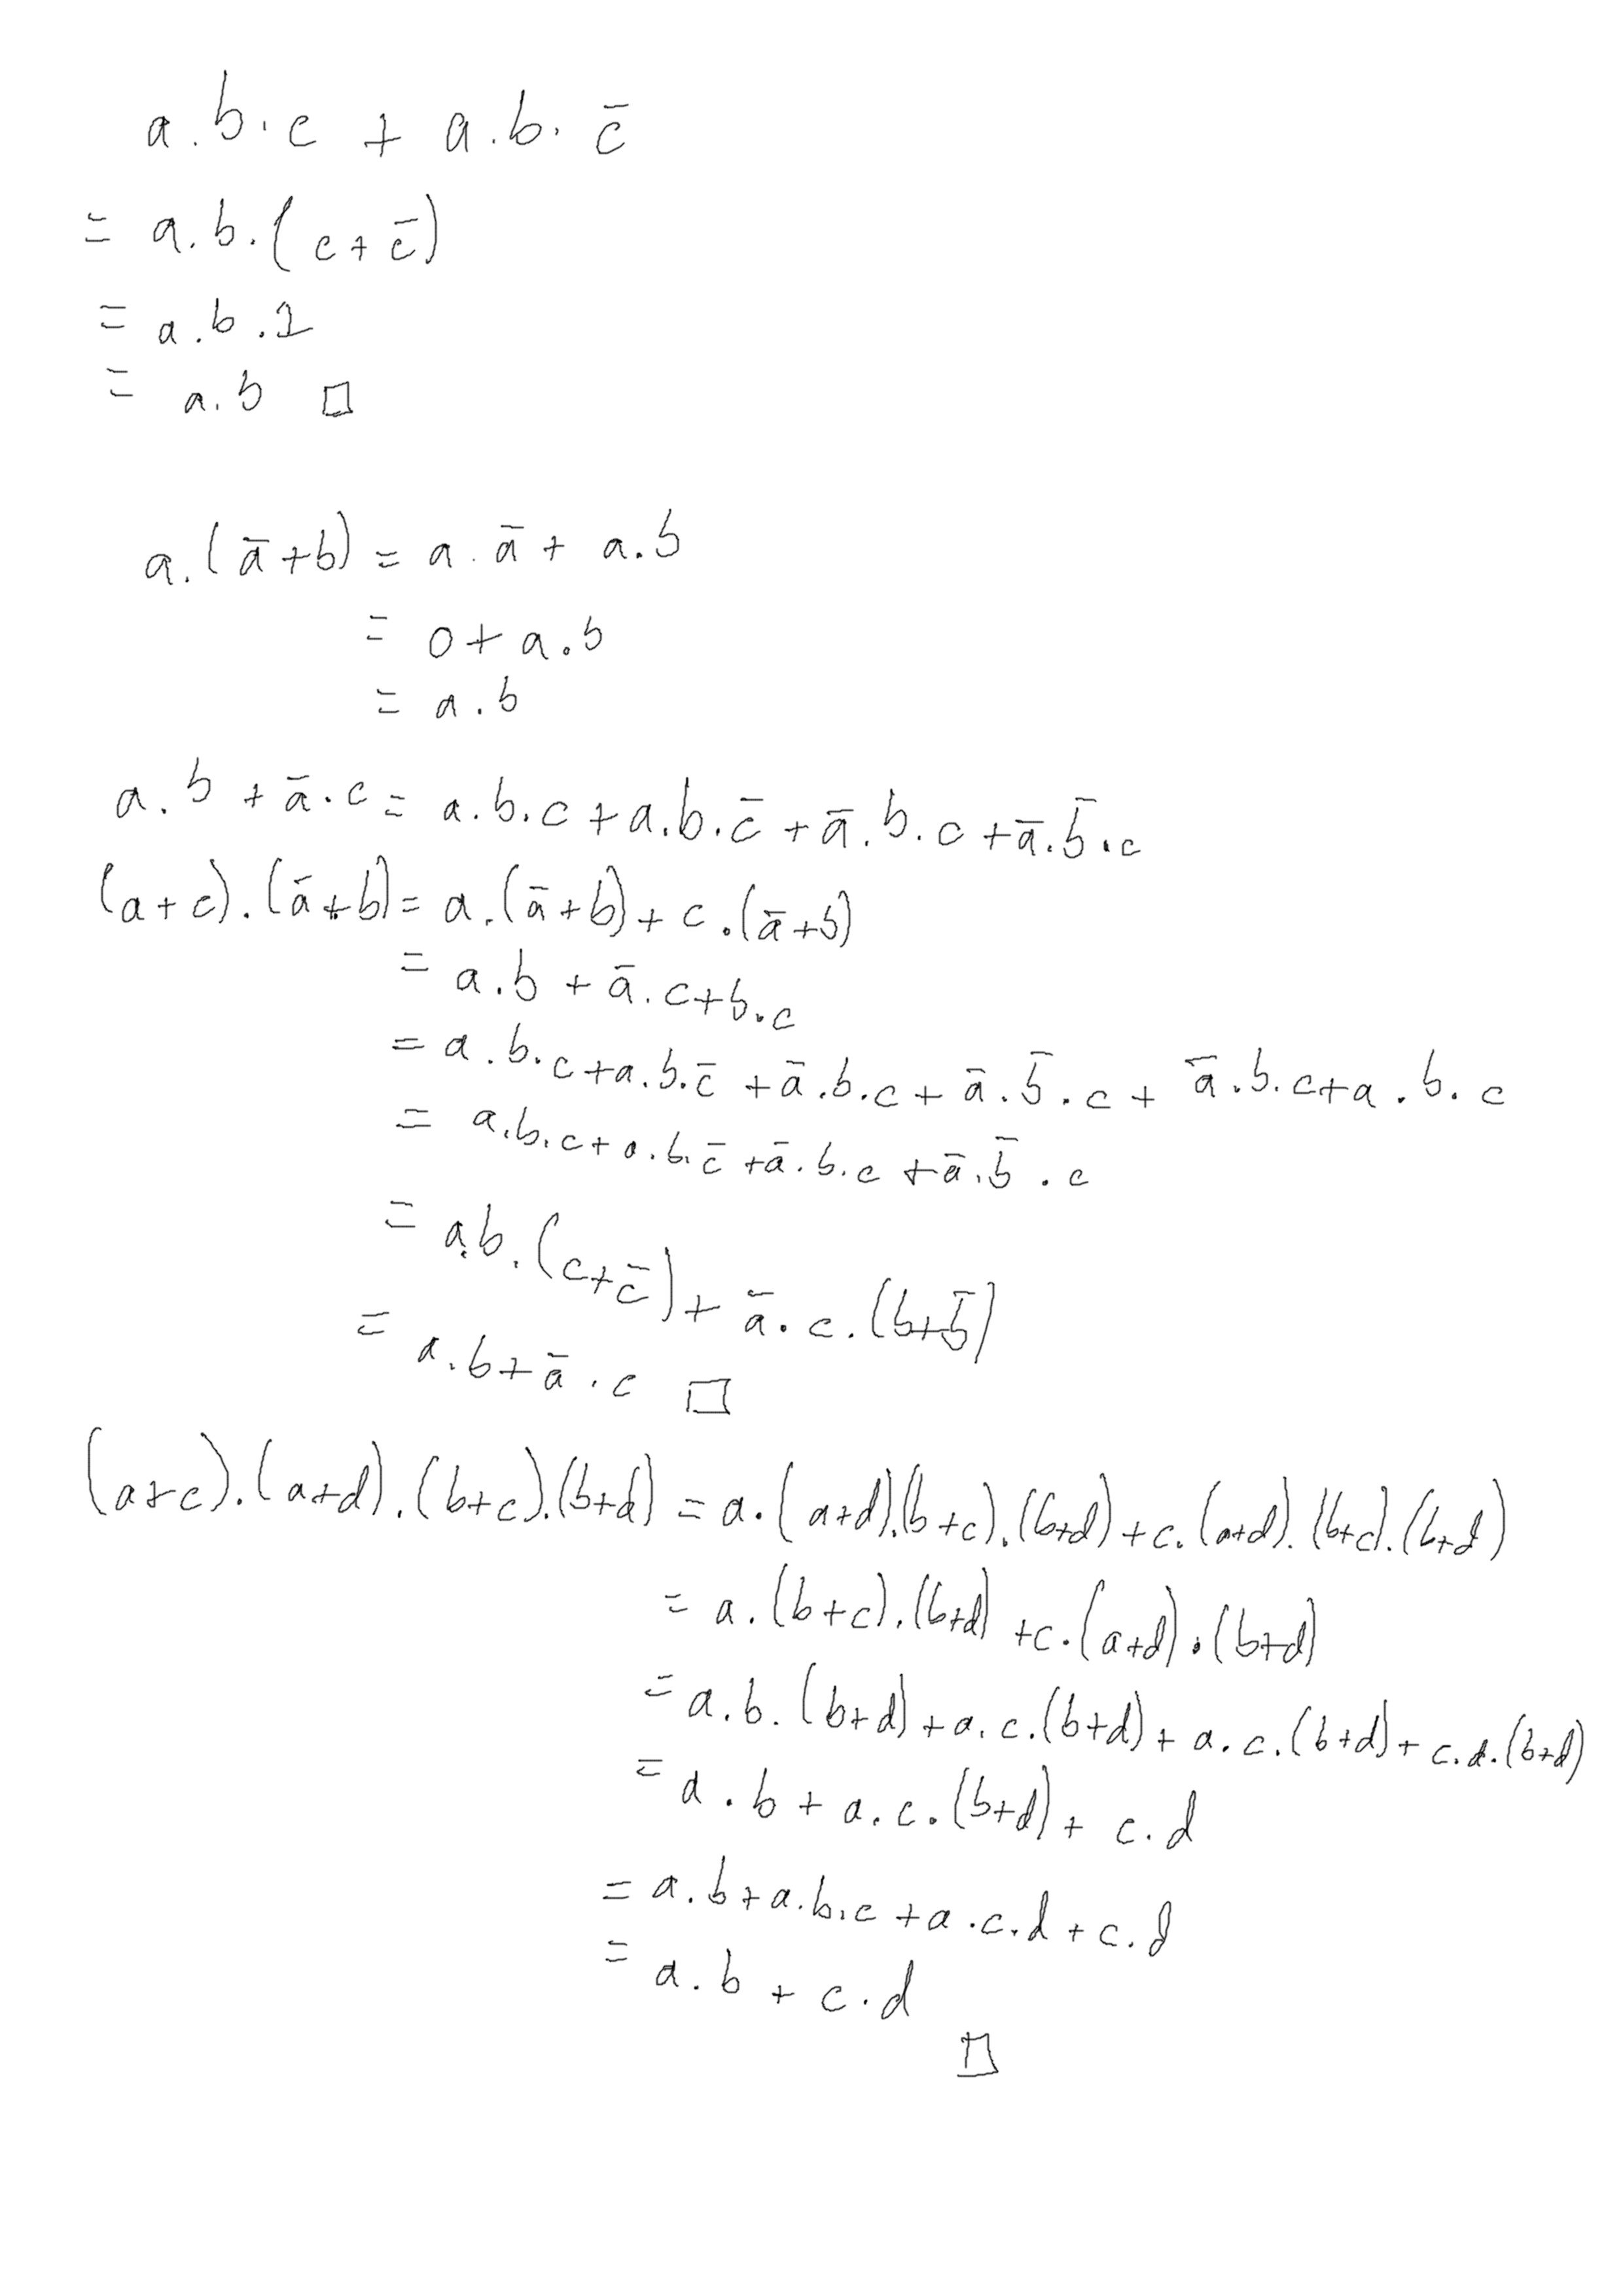 a.b.c + a.b.c̄
= a.b.(c+c̄)
= a.b.1
= a.b □
a.(ā+b) = a.ā + a.b
= 0+a.b
= a.b
a.b + ā.c = a.b.c+a.b.c̄+ā.b.c+ā.b̄.c
(a+c).(ā+b) = a.(ā+b)+c.(ā+b)
= a.b + ā.c+b.c
= a.b.c+a.b.c̄+ā.b.c+ā.b̄.c+ā.b.c+a.b.c
= a.b.c+a.b.c̄+ā.b.c+ā.b̄.c
= a.b.(c+c̄)+ā.c.(b+b̄)
= a.b+ā.c □
(a+c).(a+d).(b+c).(b+d) = a.(a+d).(b+c).(b+d)+c.(a+d).(b+c).(b+d)
= a.(b+c).(b+d)+c.(a+d).(b+d)
= a.b.(b+d)+a.c.(b+d)+a.c.(b+d)+c.d.(b+d)
= a.b+a.c.(b+d)+c.d
= a.b+a.b.c+a.c.d+c.d
= a.b + c.d
□